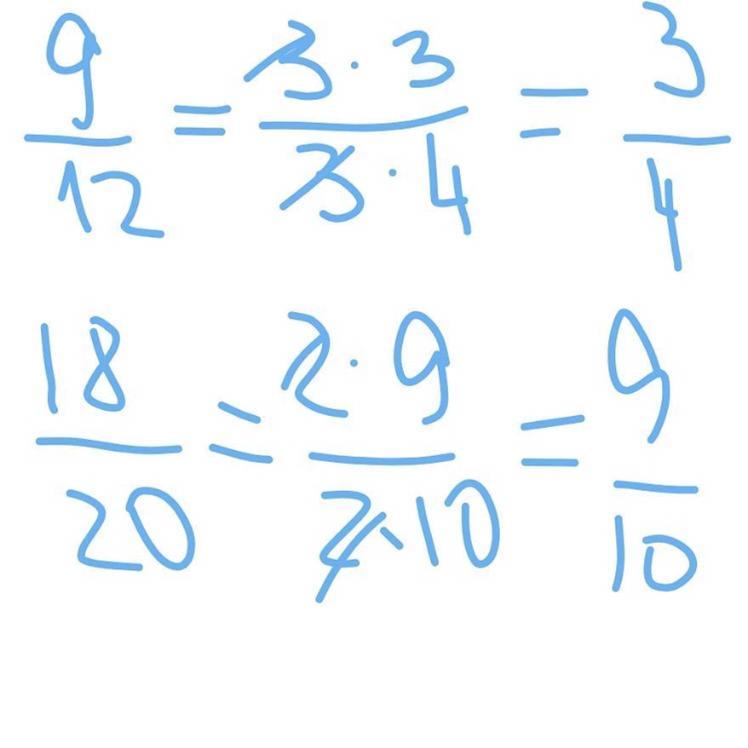 9/12 = 3·3/3·4 = 3/4
18/20 = 2·9/2·10 = 9/10